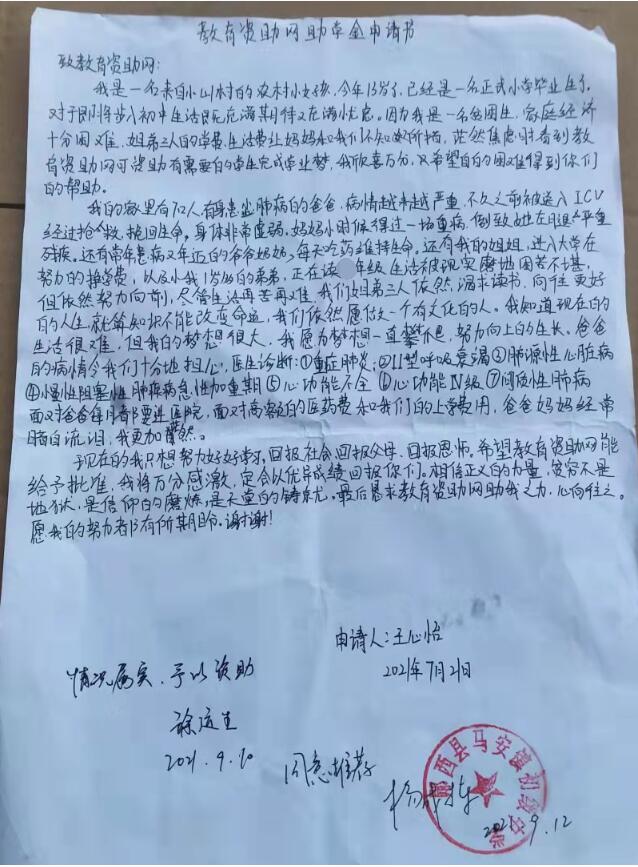 教育资助网助学金申请书
致教育资助网:
我是一名来自小山村的农村小女孩,今年13岁了,已经是一名正式小学毕业生了。
对于即将步入初中生活既充满期待又充满忧患。因为我是一名贫困生,家庭经济
十分困难,姐弟三人的学费、生活费让妈妈和我们不知如何措,茫然焦虑时看到教
育资助网可资助有需要的学生完成学业梦,我欣喜万分,又希望自的困难得到你们
的帮助。
我的家里有70人有身患尘肺病的爸爸,病情越来越严重,不久之前被送入ICV
经过抢救,挽回生命,身体非常虚弱,妈妈小时候得过一场重病,倒致她左腿严重
残疾。还有常年患病又年迈的爷爷奶奶,每天吃药维持生命。还有我的姐姐,进入大学在
努力的挣学费,以及小我1岁的弟弟,正在读年级,生活被现实磨地困苦不堪,
但依然努力向前,尽管生活再苦再难,我们姐弟三人依然,渴求读书,向往更好
的人生,就算知识不能改变命运,我们依然愿做一个有文化的人。我知道现在的
生活很难,但我的梦想很大,我愿为梦想一直攀爬,努力向上的生长。爸爸
的病情令我们十分地担心,医生诊断:①重症肺炎;②II型呼吸衰竭③肺源性心脏病
④慢性阻塞性肺疾病急性加重期⑤心功能不全⑥心功能IV级⑦间质性肺病
面对爸爸每月都要进医院,面对高额的医药费和我们的上学费用,爸爸妈妈经常
暗自流泪,我更加茫然。
现在的我只想努力好好学习,回报社会,回报父母,回报恩师。希望教育资助网能
给予批准,我将万分感激,定会以优异成绩回报你们。相信正义的力量,贫穷不是
地狱,是信仰的磨炼,是天堂的铸就。最后恳求教育资助网助我之力,心向往之。
愿我的努力都有所期盼。谢谢!
申请人:王心怡
2021年7月21日
情况属实,予以资助
2021.9.10
同意推荐
郧西县马安镇初级中学
2021.9.12